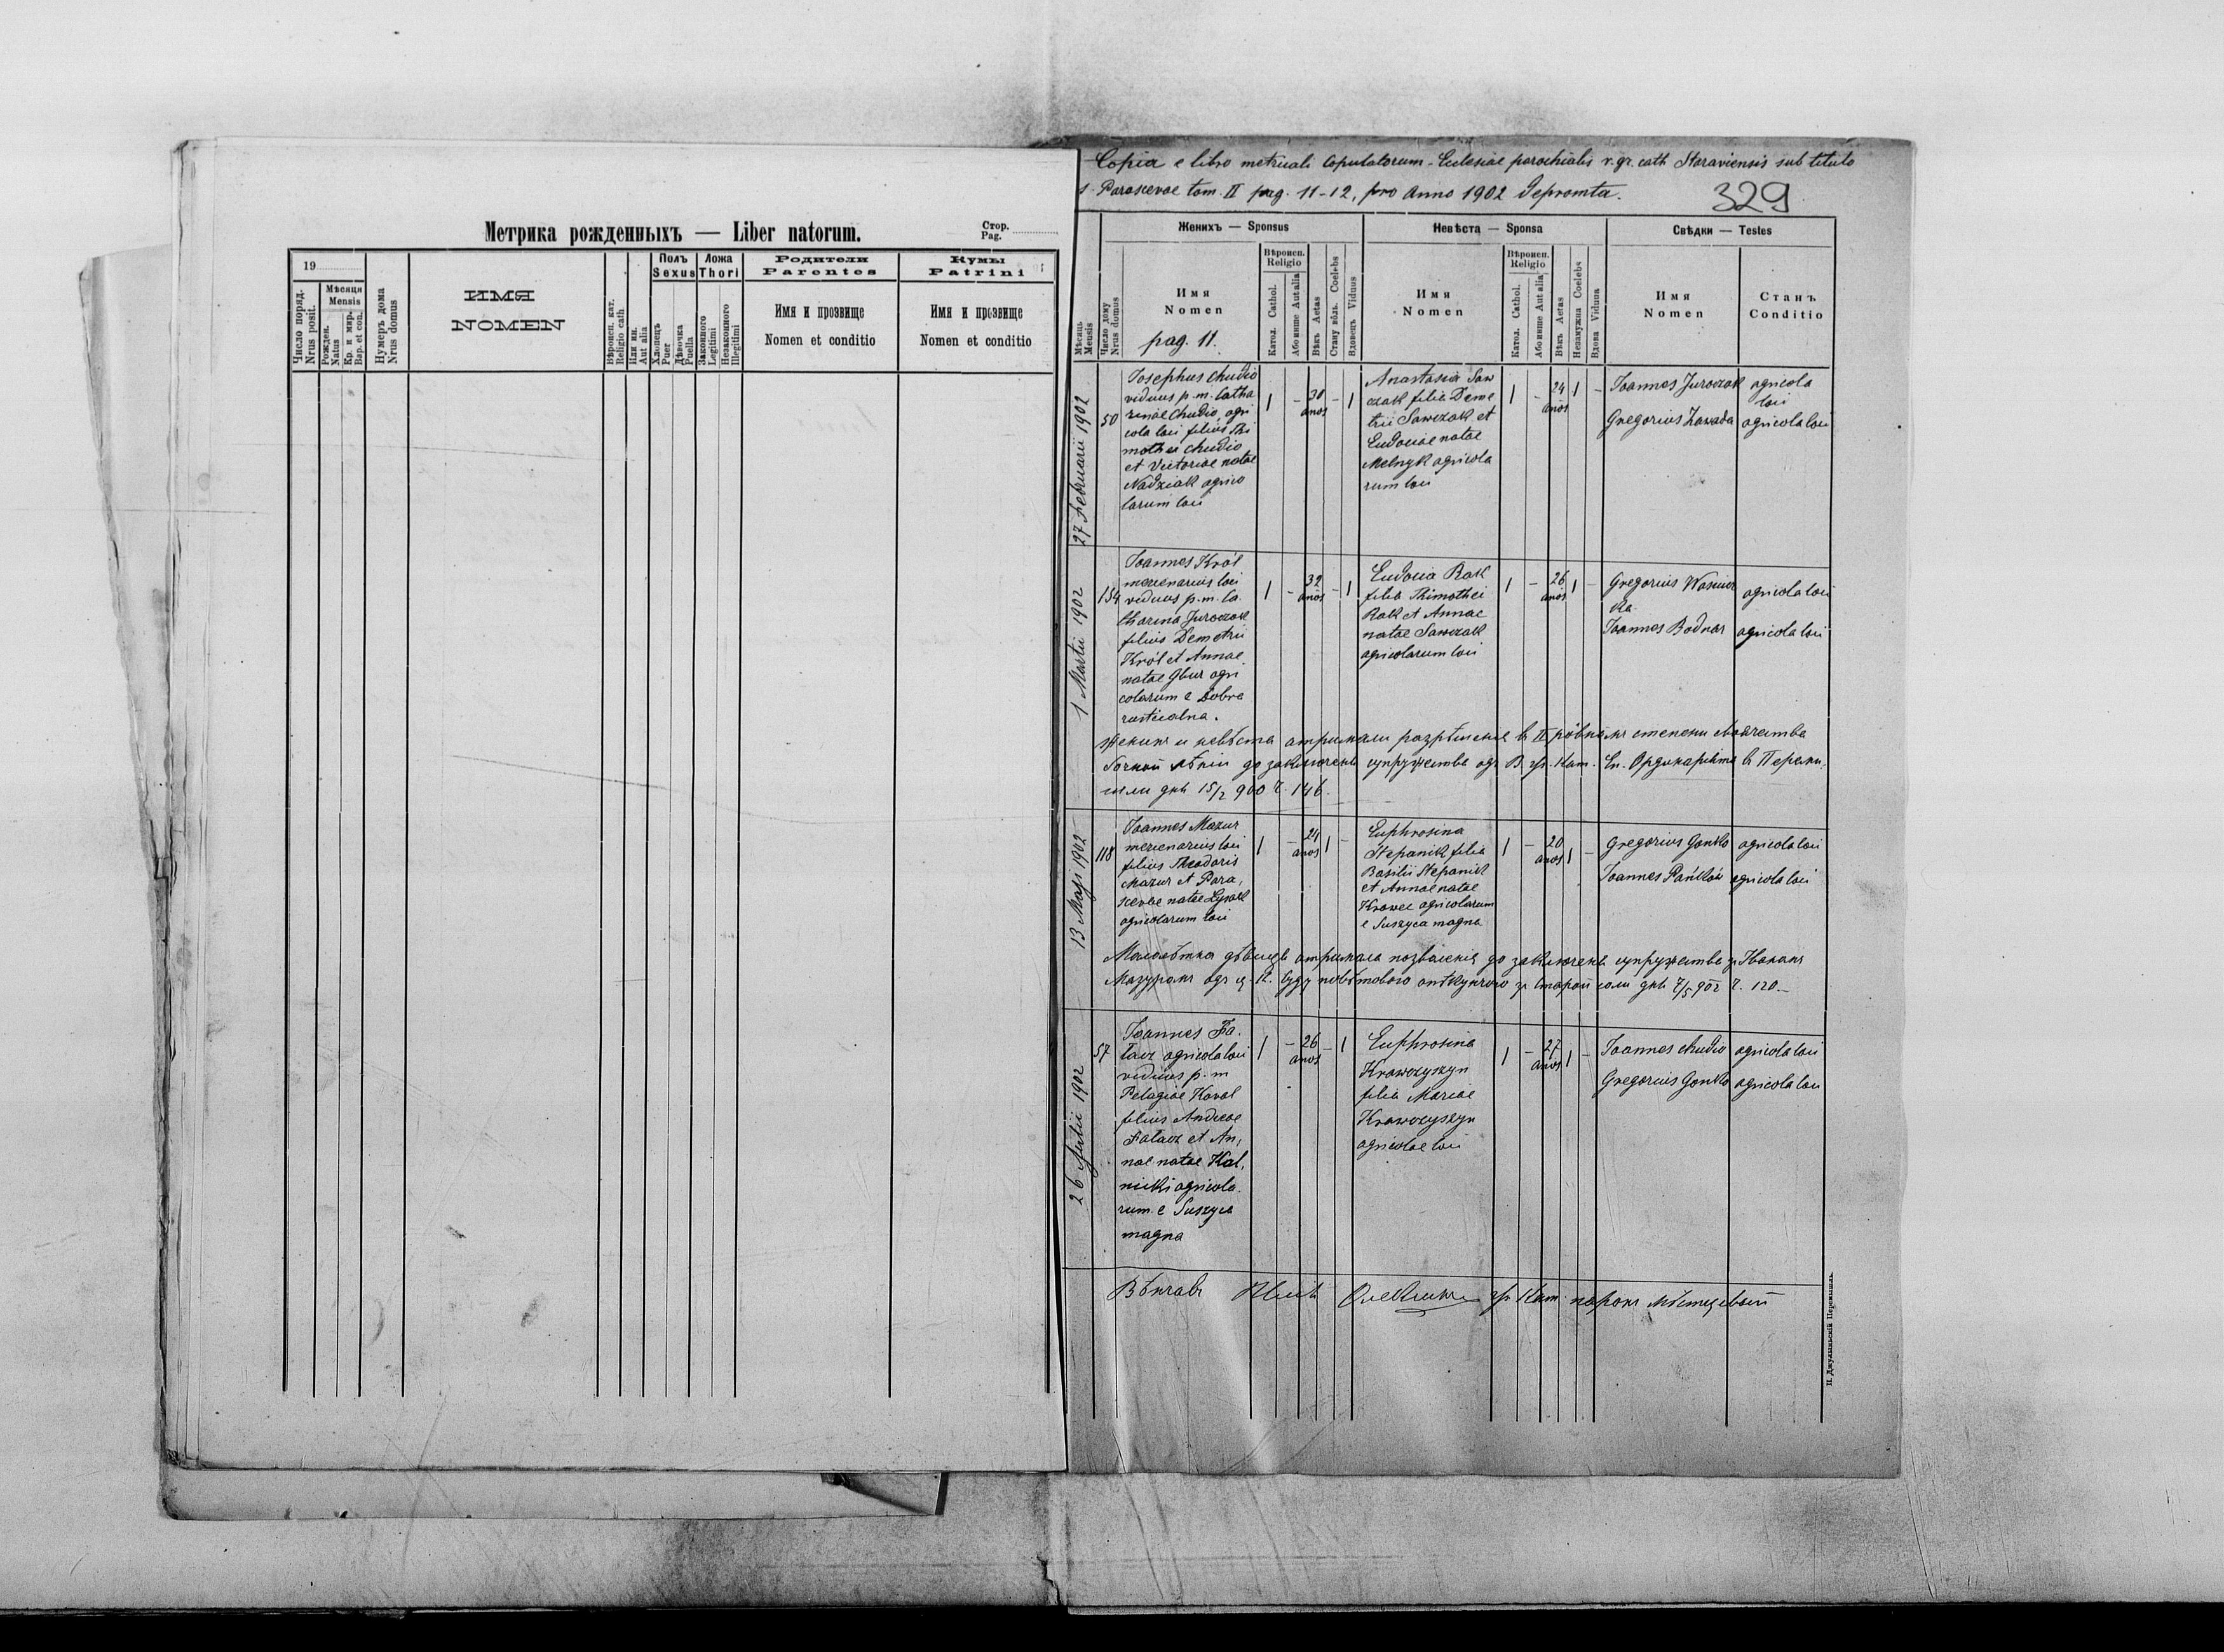 Метрика рожденныхъ — Liber natorum.
Стор.
Pag.
19
Число поряд.
Nrus posit.
Мѣсяця
Mensis
Рожден.
Natus
Кр. и мир.
Bap. et con.
Нумеръ дома
Nrus domus
ИМЯ
NOMEN
Вѣроисп. кат.
Religio cath.
Или ин.
Aut alia
Полъ
Sexus
Хлопецъ
Puer
Дѣвочка
Puella
Ложа
Thori
Законного
Legitimi
Незаконного
Illegitimi
Родители
Parentes
Имя и прозвище
Nomen et conditio
Кумы
Patrini
Имя и прозвище
Nomen et conditio
Copia e libro metricali Copulatorum Eclesiae parochialis r. gr. cath Staraviensis sub titulo
s. Parascevae tom. II pag. 11-12, pro Anno 1902 depromta.
329
Мѣсяць
Mensis
Число дому
Nrus domus
Женихъ — Sponsus
Имя
Nomen
pag. 11.
Вѣроисп.
Religio
Катол. Cathol.
Або инше Aut alia
Вѣкъ Aetas
Стану вôль. Coelebs
Вдовець Viduus
Невѣста — Sponsa
Имя
Nomen
Вѣроисп.
Religio
Катол. Cathol.
Або инше Aut alia
Вѣкъ Aetas
Незамужна Coelebs
Вдова Vidua
Свѣдки — Testes
Имя
Nomen
Станъ
Conditio
27 Februarii 1902
50
Josephus Chudio
viduus p. m. Catha
rinae Chudio, agri
cola loci filius Thi
mothei Chudio
et Victoriae natae
Nadziak agrico
larum loci
1 - 30 anos - 1
Anastasia Saw
czak filia Deme
trii Sawczak et
Eudociae natae
Melnyk agricola
rum loci
1 - 24 anos 1 -
Joannes Juroczak agricola
loci
Gregorius Zawada agricola loci
1 Martii 1902
134
Joannes Król
mercenarius loci
viduus p. m. Ca
tharina Juroczak
filius Demetrii
Król et Annae
natae Gbur agri
colarum e Dobra
rusticalna.
1 - 32 anos - 1
Eudocia Rak
filia Thimothei
Rak et Annae
natae Sawczak
agricolarum loci
1 - 26 anos 1 -
Gregorius agricola loci
Joannes Bodnar agricola loci
и невѣста отримали розрѣшенія в II рôвнôмъ степени
до заключеня супружества одъ В. гр. Кат. Еп. Ординаріята в Перемы
шли дня 15/2 900 Ч. 146.
13 Maji 1902
118
Joannes Mazur
mercenarius loci
filius Theodoris
Mazur et Para,
scevae natae Lysak
agricolarum loci
1 - 24 anos 1 -
Euphrosina
Stepanik filia
Basilii Stepanik
et Annae natae
Krawec agricolarum
e Suszyca magna
1 - 20 anos 1 -
Gregorius Gonko agricola loci
Joannes Pańków agricola loci
Малолѣтна отримала позволенія до заключеня супружества зъ Иваномъ
Мазуромъ одъ ц. к. Суду повѣтового опѣкунчого зъ Старой соли дня 7/5 902 Ч. 120.-
26 1902
57
Joannes Fa.
tacz agricola loci
viduus p. m
Pelagiae Koval
filius Andreae
Fatacz et An,
nae natae Kal,
nicki agricola.
rum e Suszyca
magna
1 - 26 anos - 1
Euphrosina
Krawczyszyn
filia Mariae
Krawczyszyn
agricolae loci
1 - 27 anos 1 -
Joannes Chudio agricola loci
Gregorius Gonko agricola loci
Вѣнчавъ гр. Кат. парохъ мѣстцевый